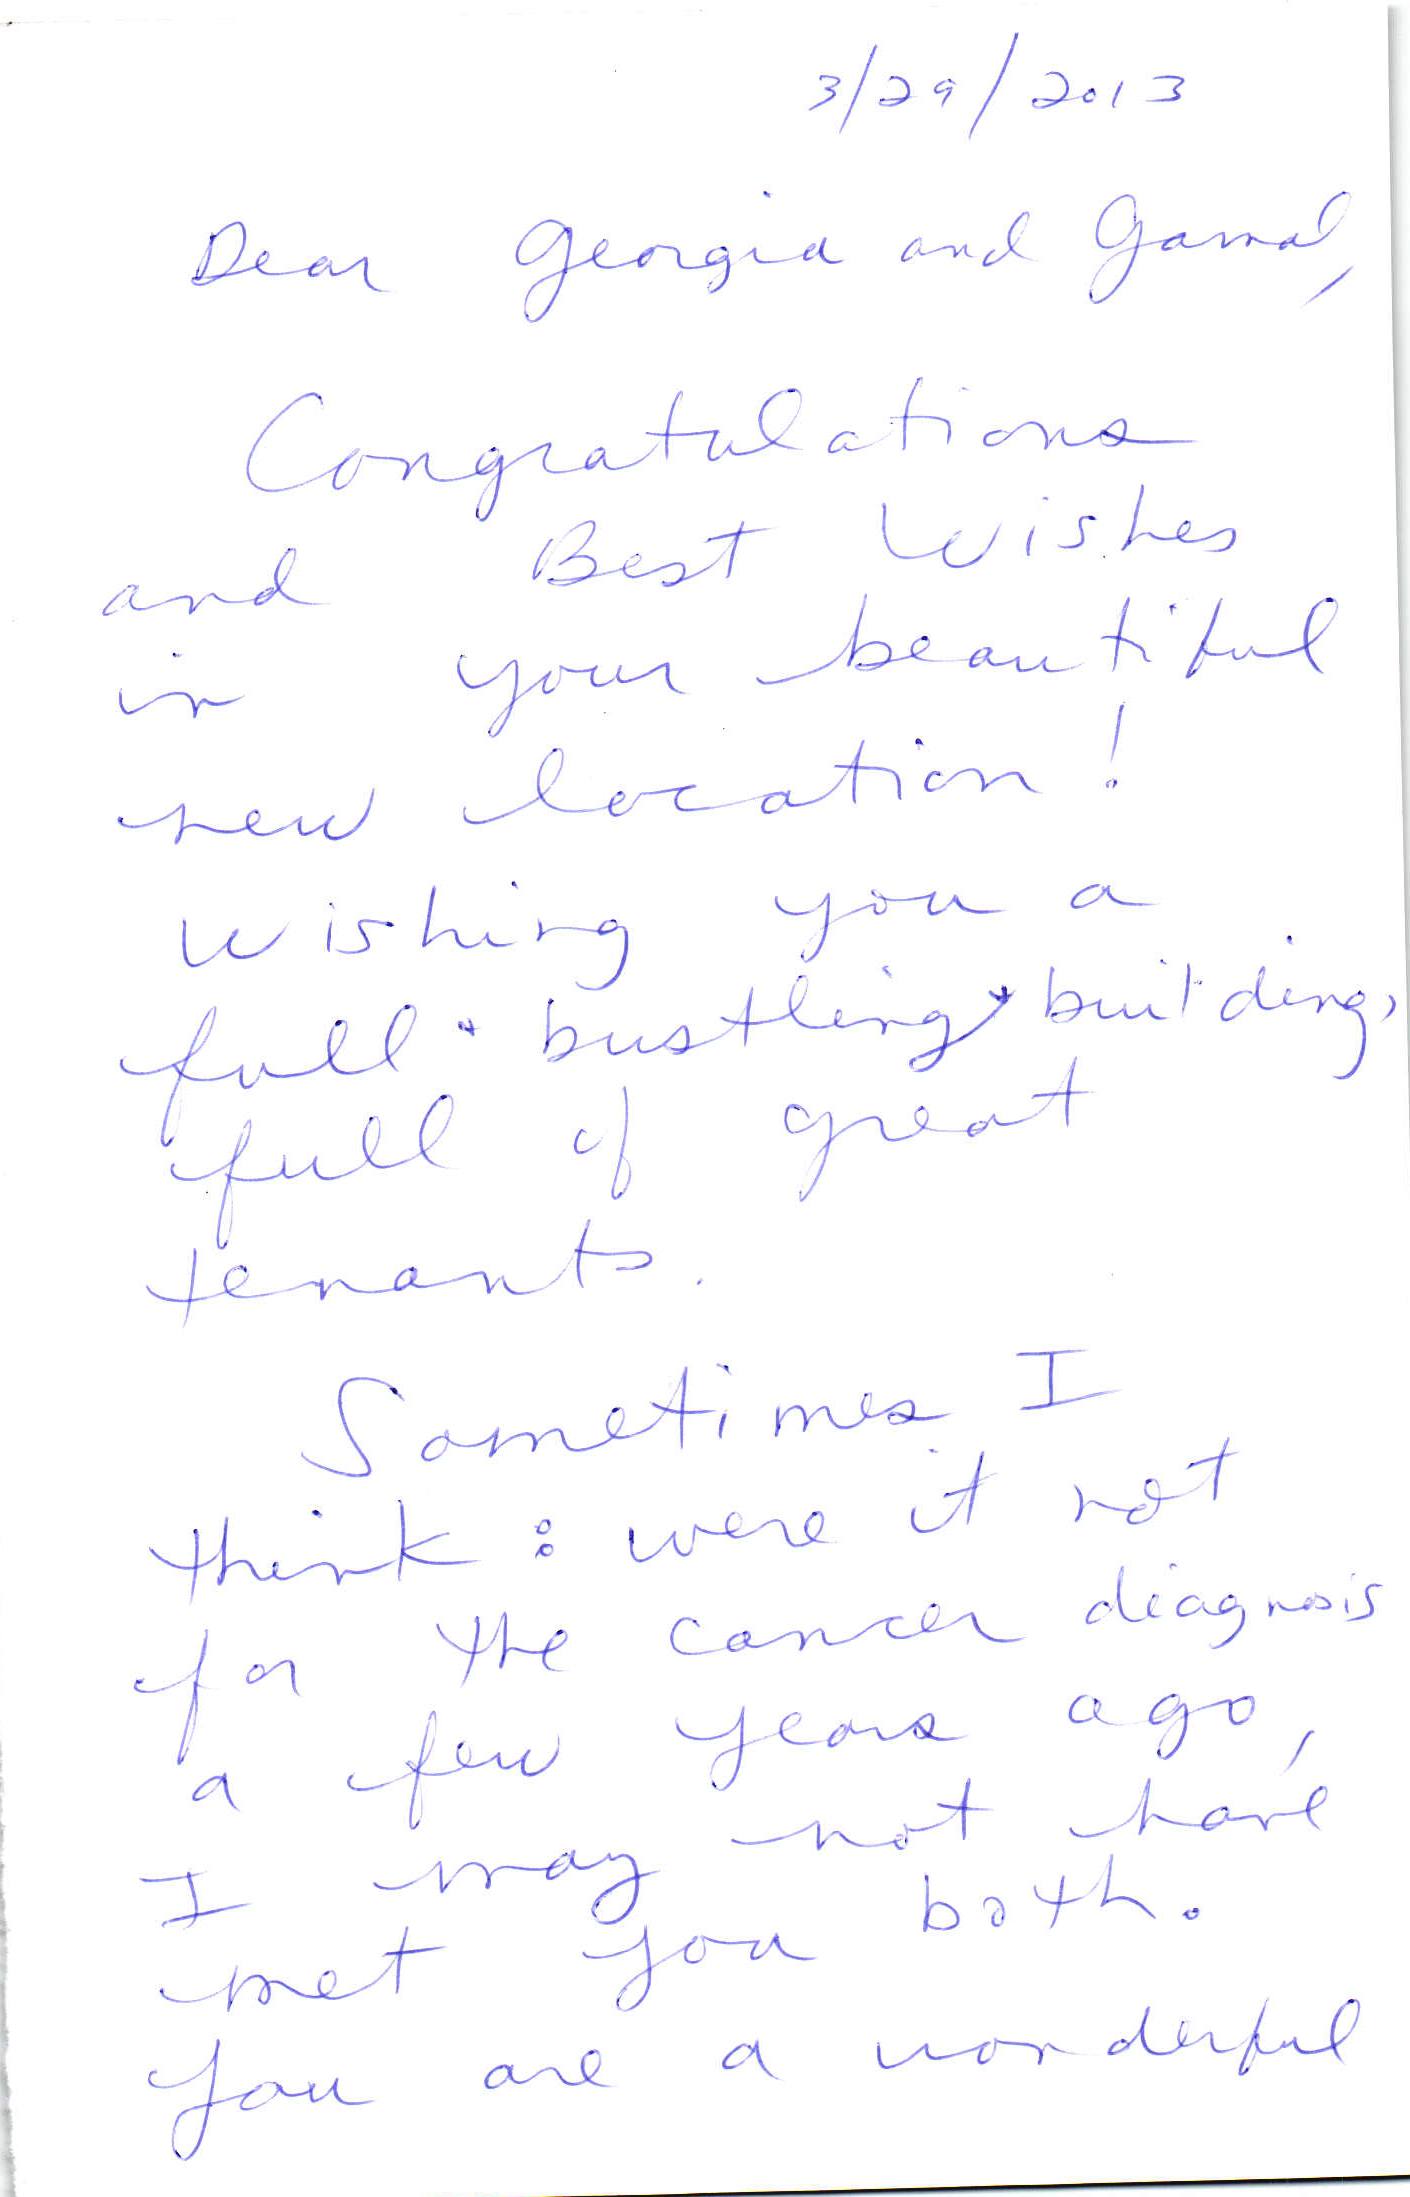 3/29/2013
Dear Georgia and Gamal,
Congratulations
and Best Wishes
in your beautiful
new location!
Wishing you a
full + bustling + building,
full of great
tenants.
Sometimes I
think: were it not
for the cancer diagnosis
a few years ago,
I may not have
met you both.
You are a wonderful